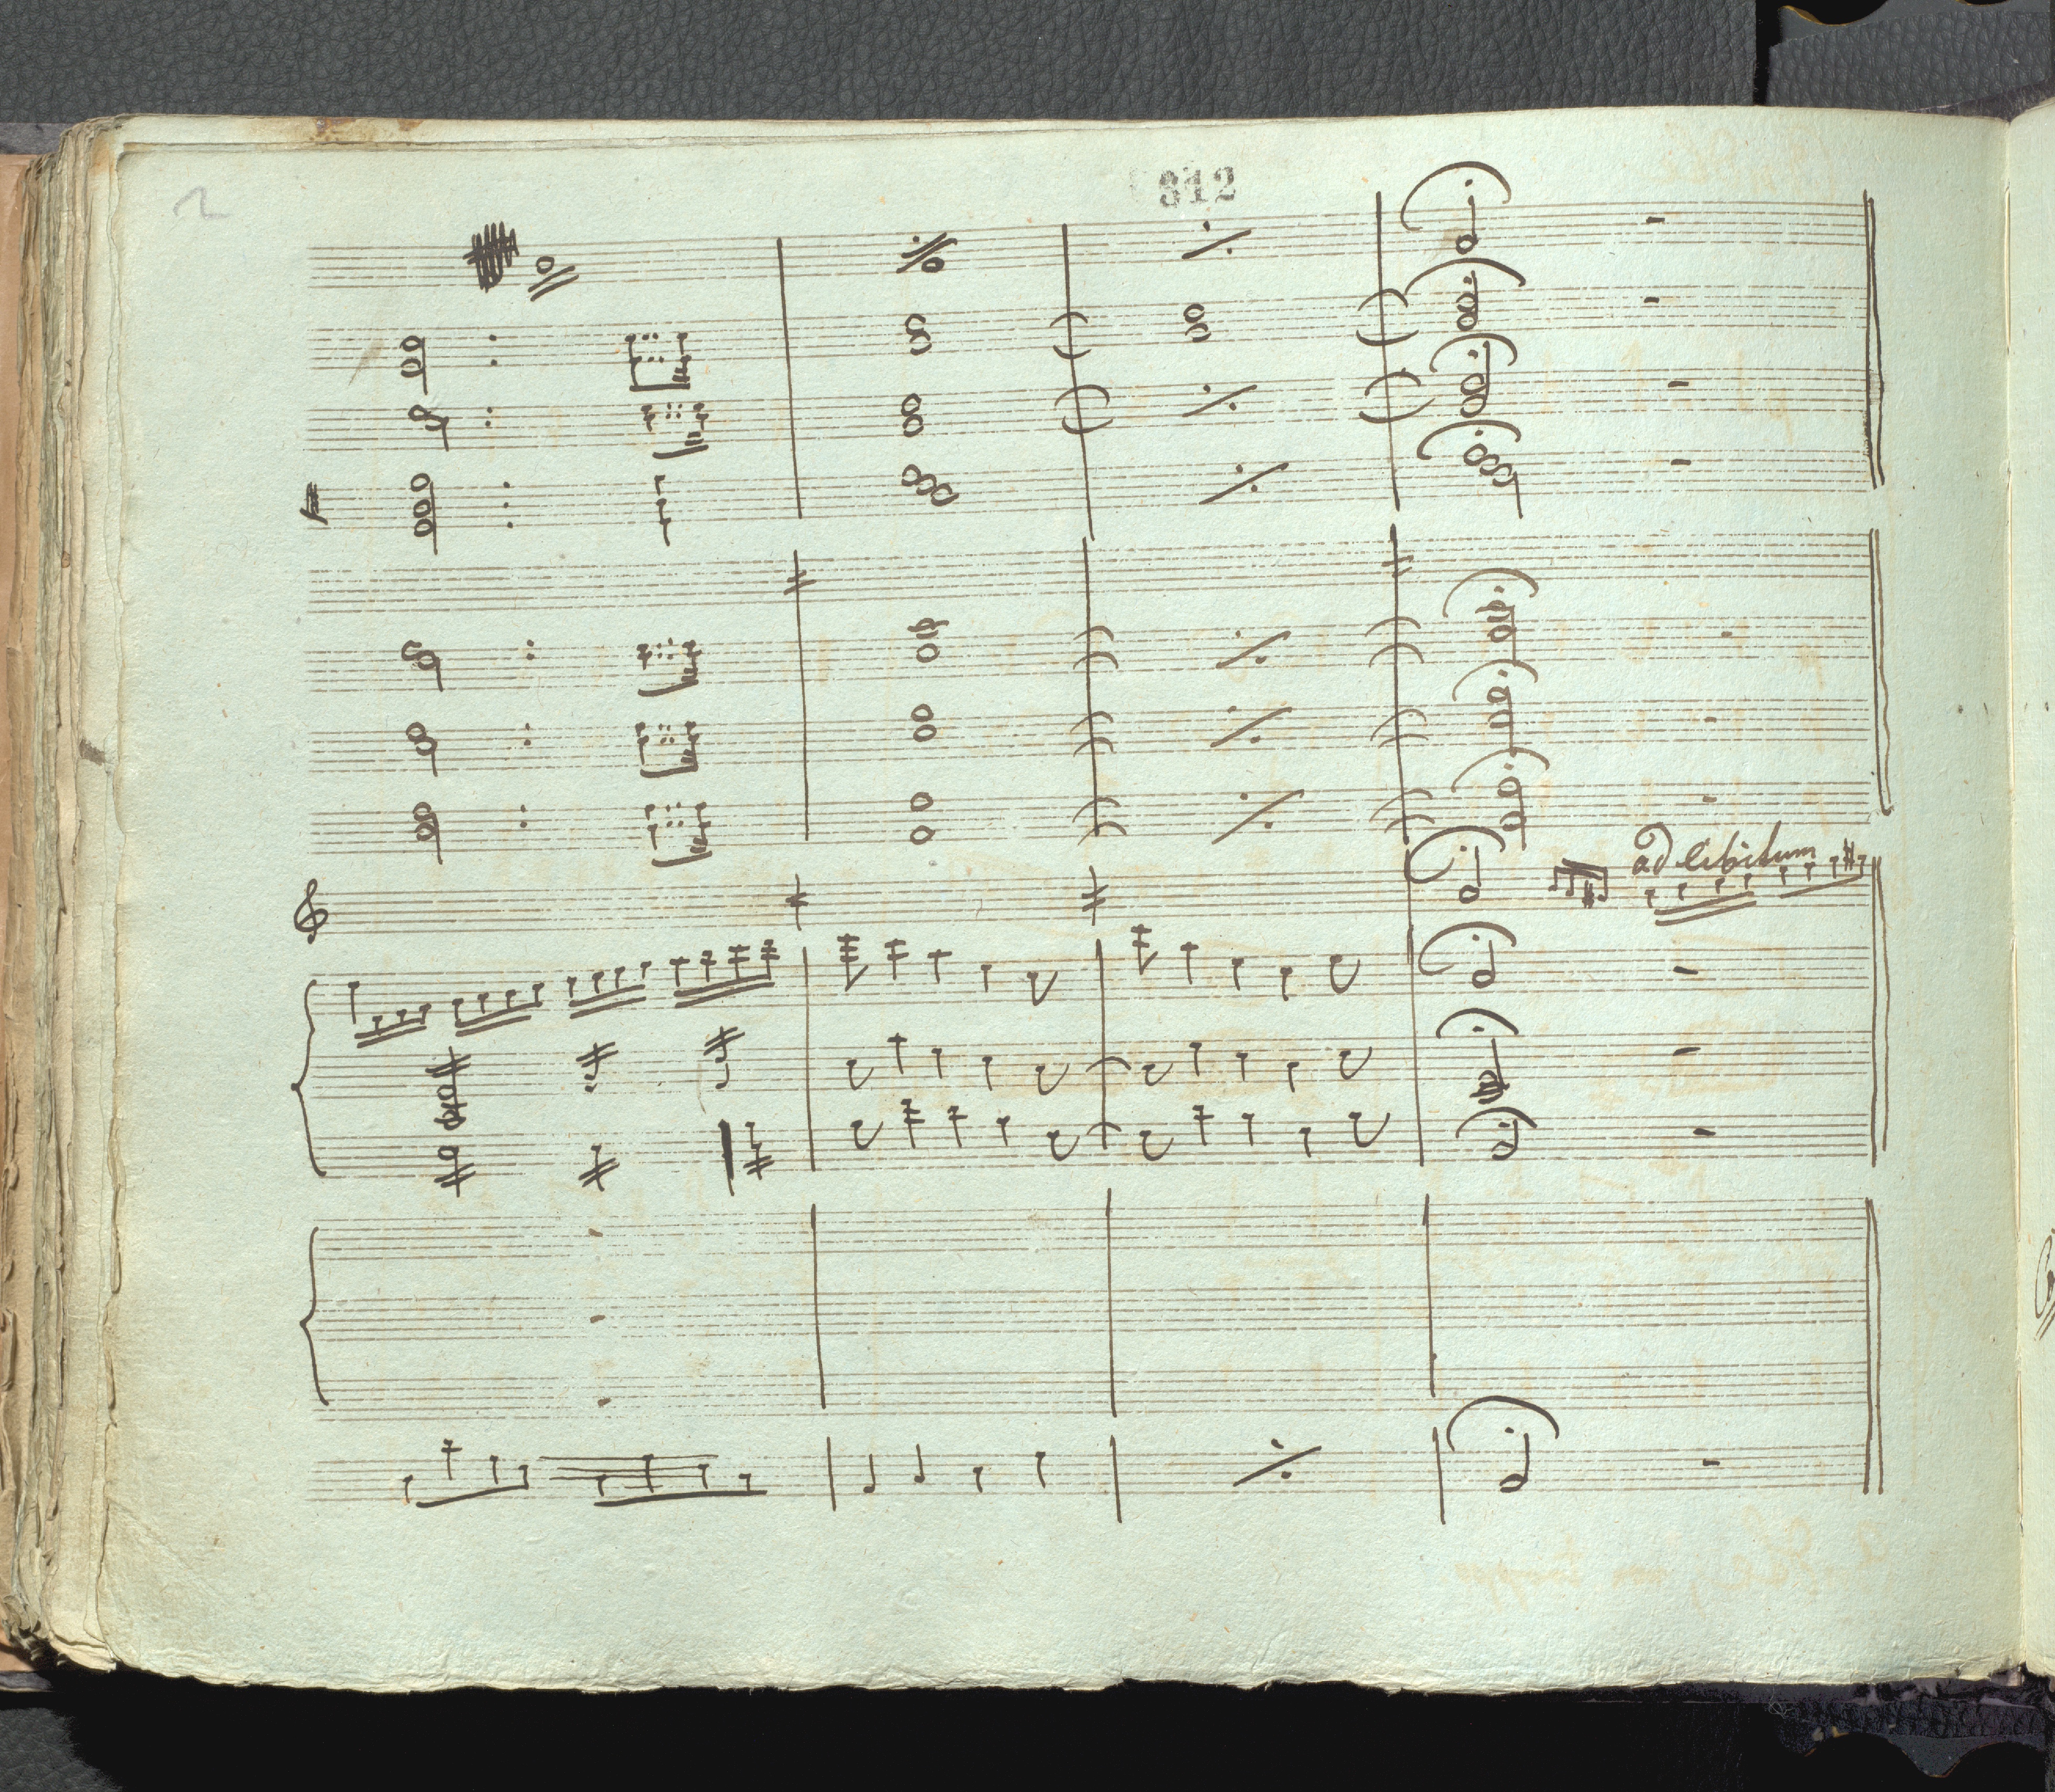 2
312
ad libitum